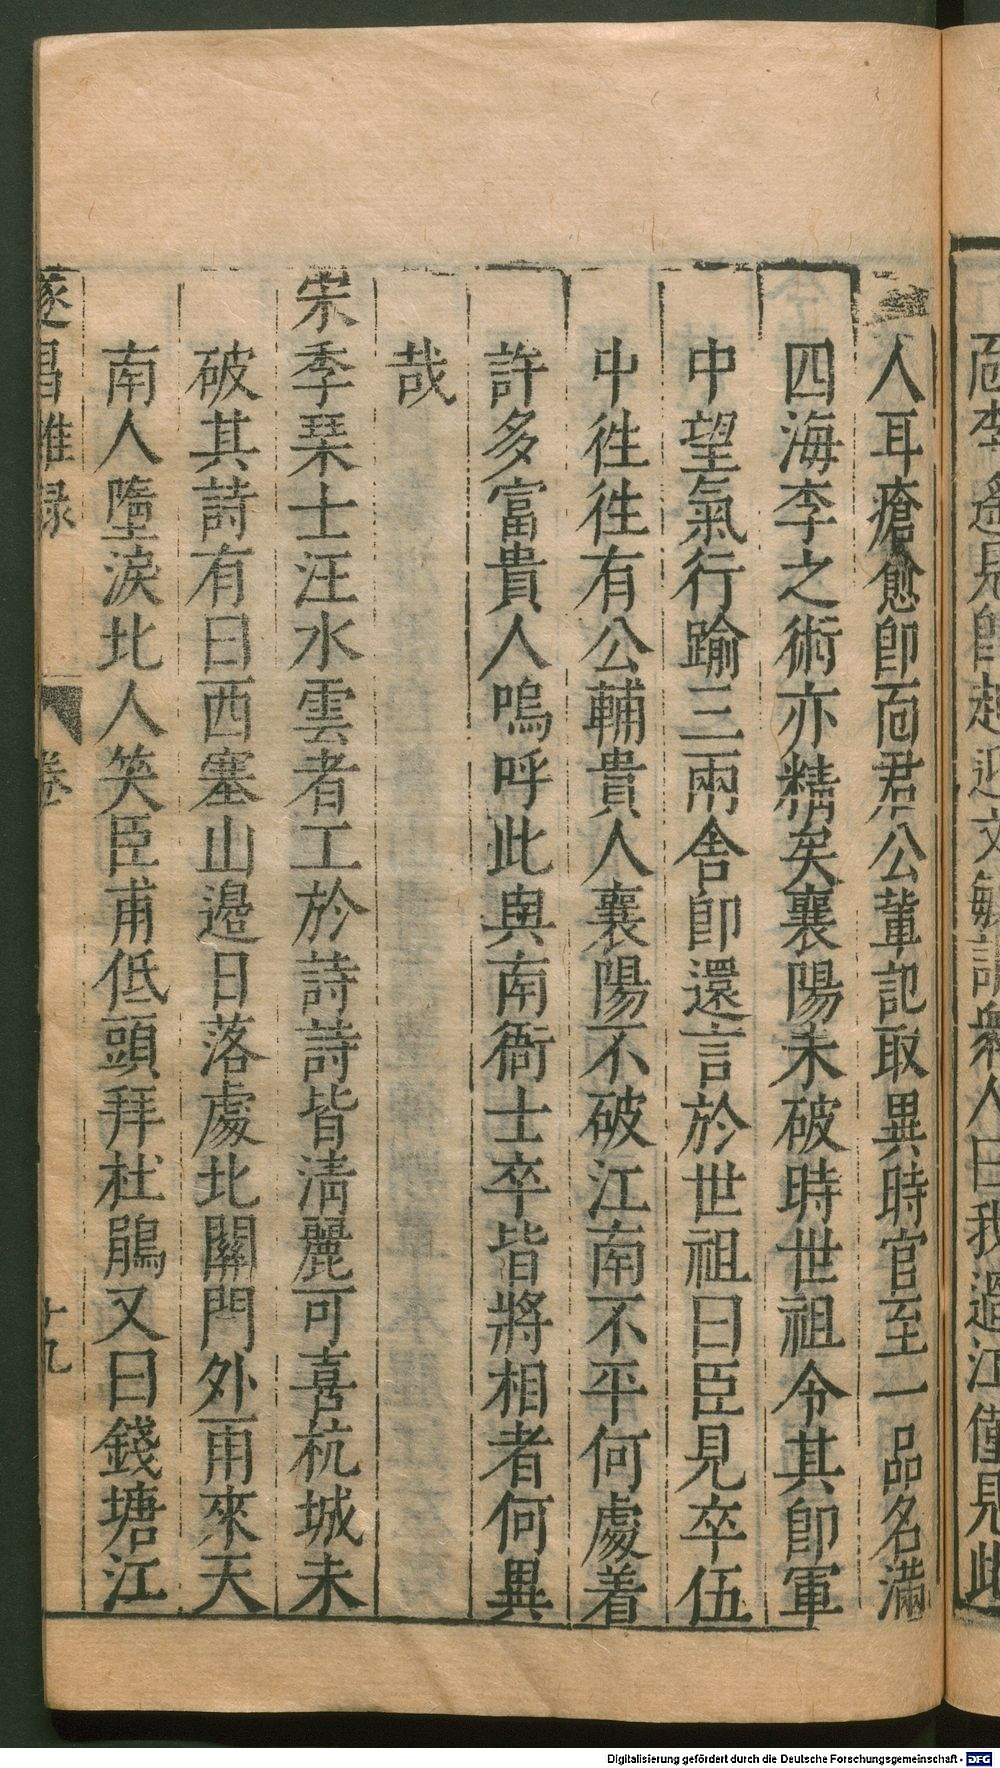 靣李遙見即起迎文敏語衆人曰我過江僅見此
人耳瘡愈即靣君公軰記取異時官至一品名滿
四海李之術亦精矣襄陽未破時世祖令其即軍
中望氣行踰三兩舍即還言於世祖曰臣見卒伍
中徃徃有公輔貴人襄陽不破江南不平何處着
許多富貴人嗚呼此與南衙士卒皆將相者何異
哉
宋季琴士汪水雲者工於詩詩皆淸麗可喜杭城未
破其詩有曰西塞山邉日落處北關門外雨來天
南人墮淚北人笑臣甫低頭拜杜鵑又曰錢塘江
遂昌雜録 卷 十九
Digitalisierung gefördert durch die Deutsche Forschungsgemeinschaft - DFG